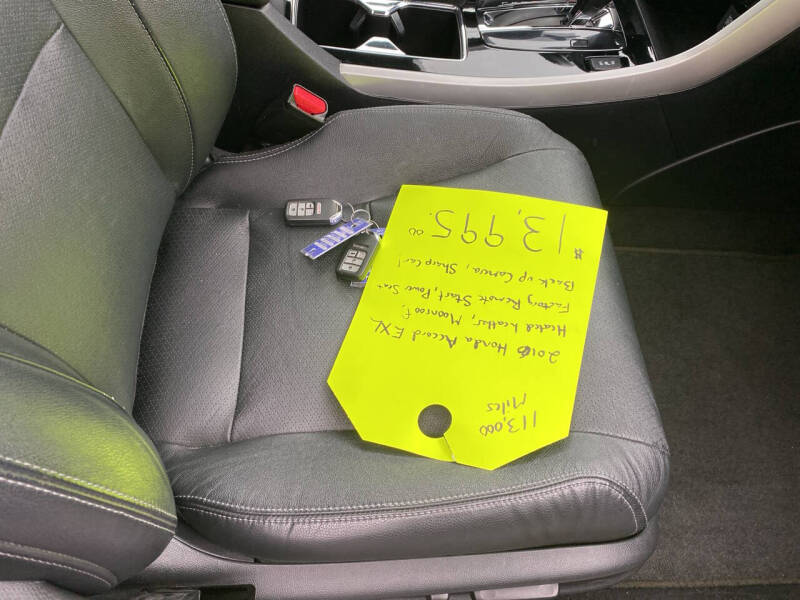 113,000
Miles
2016 Honda Accord EXL
Heated Leather, Moonroof,
Factory Remote Start, Power Seat
Back up Camera, Sharp Car!
$13,995.00